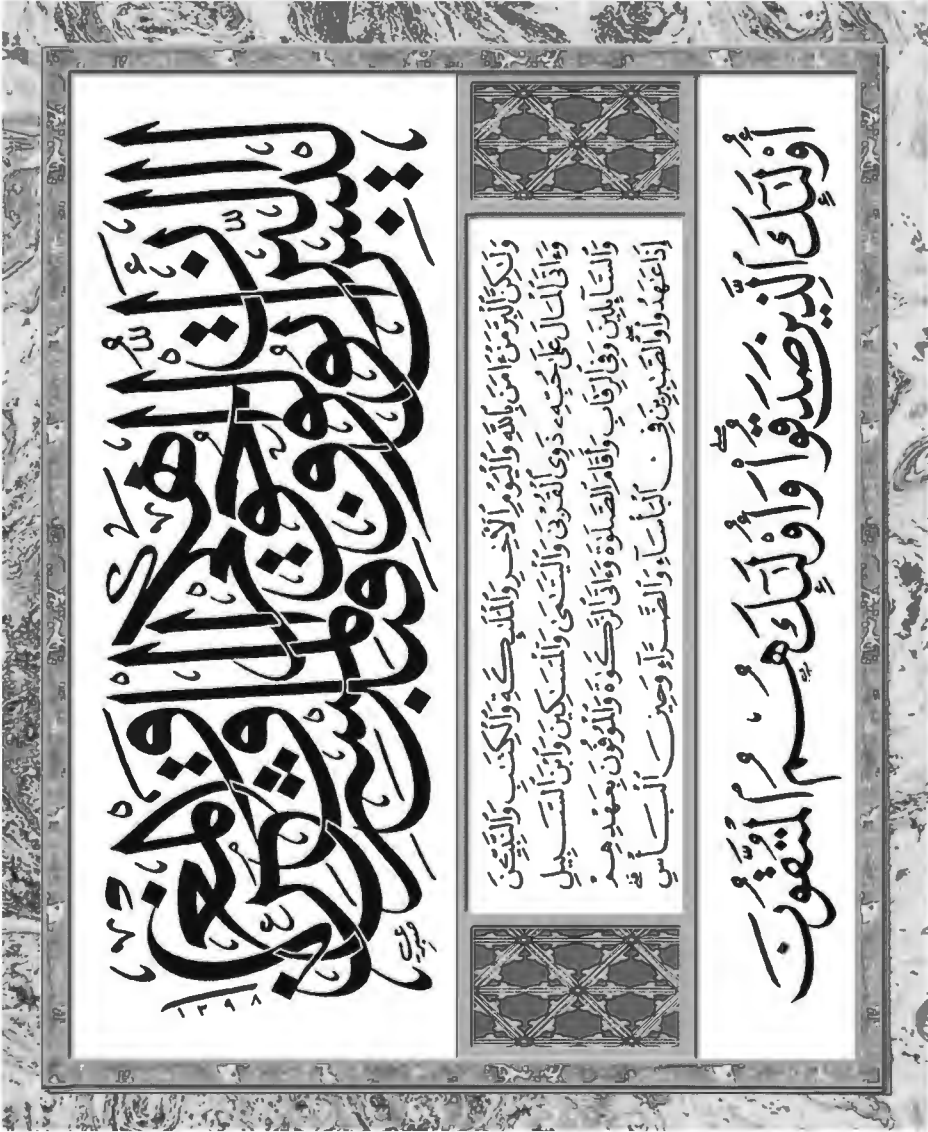 لَيْسَ الْبِرَّ أَنْ تُوَلُّوا وُجُوهَكُمْ قِبَلَ الْمَشْرِقِ وَالْمَغْرِبِ
١٣٩٨
وَلَٰكِنَّ ٱلْبِرَّ مَنْ ءَامَنَ بِٱللَّهِ وَٱلْيَوْمِ ٱلْأَخِرِ وَٱلْمَلَٰٓئِكَةِ وَٱلْكِتَٰبِ وَٱلنَّبِيِّـۧنَ
وَءَاتَى ٱلْمَالَ عَلَىٰ حُبِّهِۦ ذَوِى ٱلْقُرْبَىٰ وَٱلْيَتَٰمَىٰ وَٱلْمَسَٰكِينَ وَٱبْنَ ٱلسَّبِيلِ
وَٱلسَّآئِلِينَ وَفِى ٱلرِّقَابِ وَأَقَامَ ٱلصَّلَوٰةَ وَءَاتَى ٱلزَّكَوٰةَ وَٱلْمُوفُونَ بِعَهْدِهِمْ
إِذَا عَٰهَدُوا۟ ۖ وَٱلصَّٰبِرِينَ فِى ٱلْبَأْسَآءِ وَٱلضَّرَّآءِ وَحِينَ ٱلْبَأْسِ ۗ
أُو۟لَٰٓئِكَ ٱلَّذِينَ صَدَقُوا۟ ۖ وَأُو۟لَٰٓئِكَ هُمُ ٱلْمُتَّقُونَ